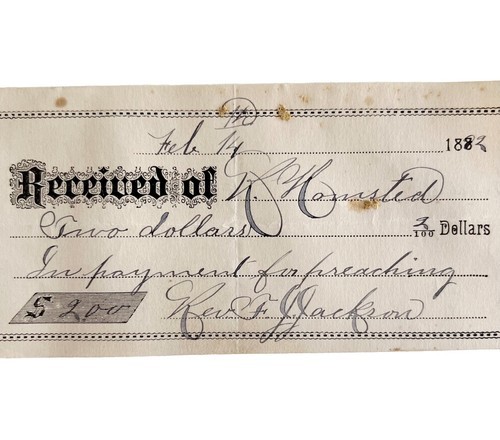 Feb 14 1882
Received of N. Homsted
Two dollars 3/100 Dollars
In payment for preaching
$ 2.00 Rev F. J Jackson